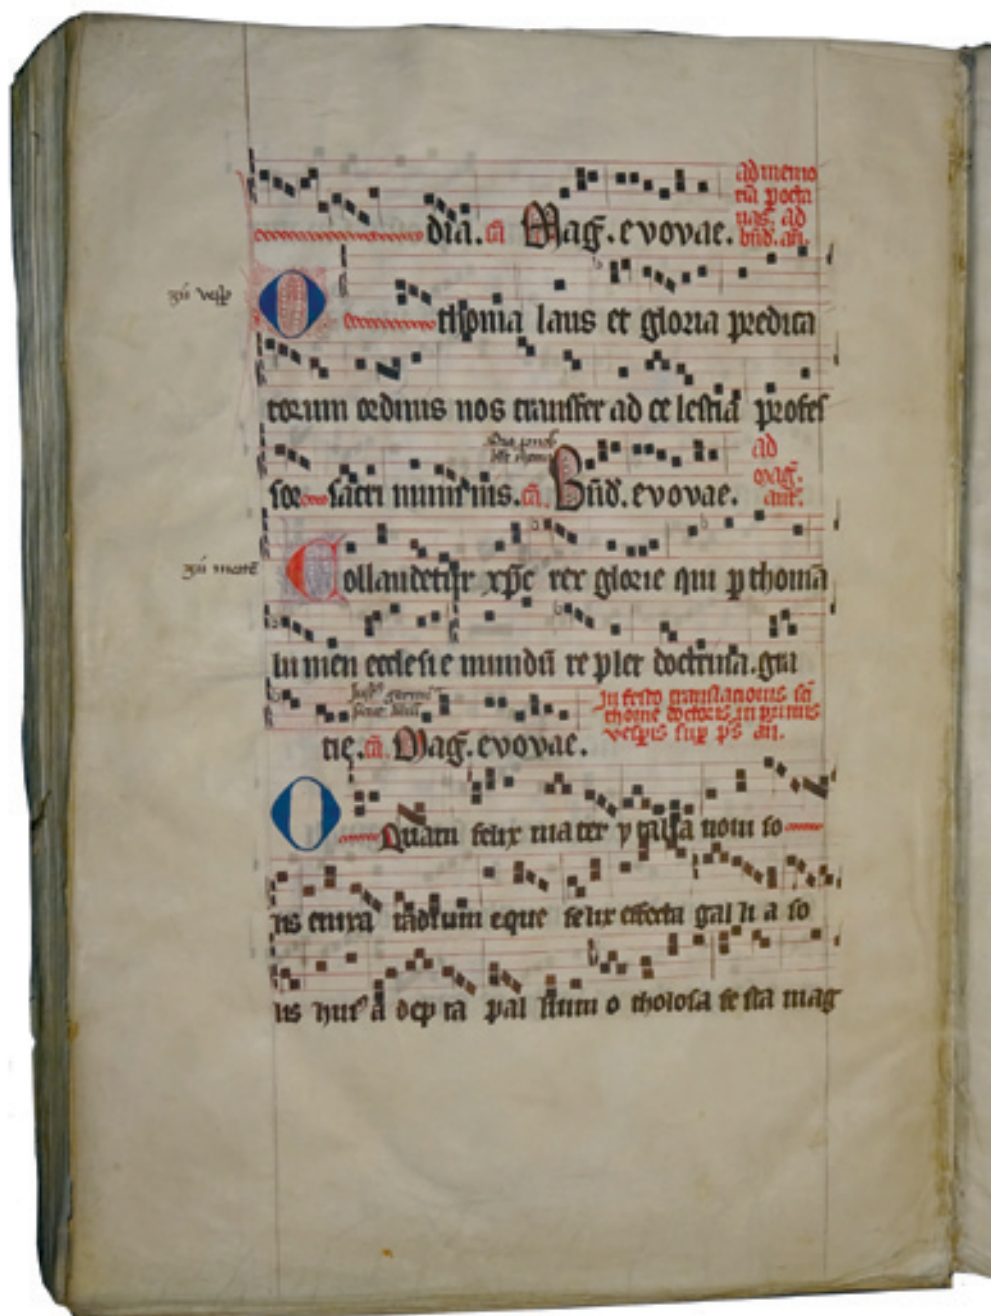 dia. cā Mag̃. evovae. ad memo
riā p octa
uas. ad
bn̄d. an̄.
O thoma laus et gloria predica
torum ordinis nos transfer ad ce lestia profes
sor sacri numinis. cā Bn̄d. evovae. ad
mag̃.
ant̄.
Collaudetur xp̄c rex glorie qui p thomā
lu men ecclesi e mundū re plet doctrina. gra
tie. cā Mag̃. evovae. In festo translationis sc̄i
thome doctoris in primis
vesp̄is sup̄ p̄s an̄.
O Quam felix mater ytalia noui so
lis enixa radium eque felix effecta gal li a so
lis hui⁹ a dep ta pal lium o tholosa fe sta mag